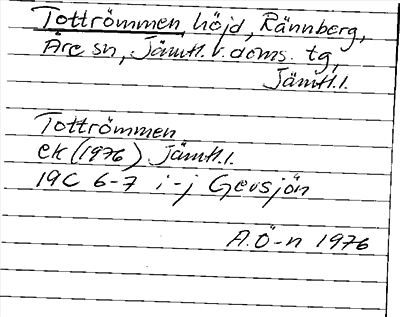 Tottrömmen, höjd, Rännberg,
Åre sn, Jämtl. v. doms. tg,
Jämtl. l.
Tottrömmen
ek (1976) Jämtl. l.
19C 6-7 i-j Gevsjön
A.Ö-n 1976